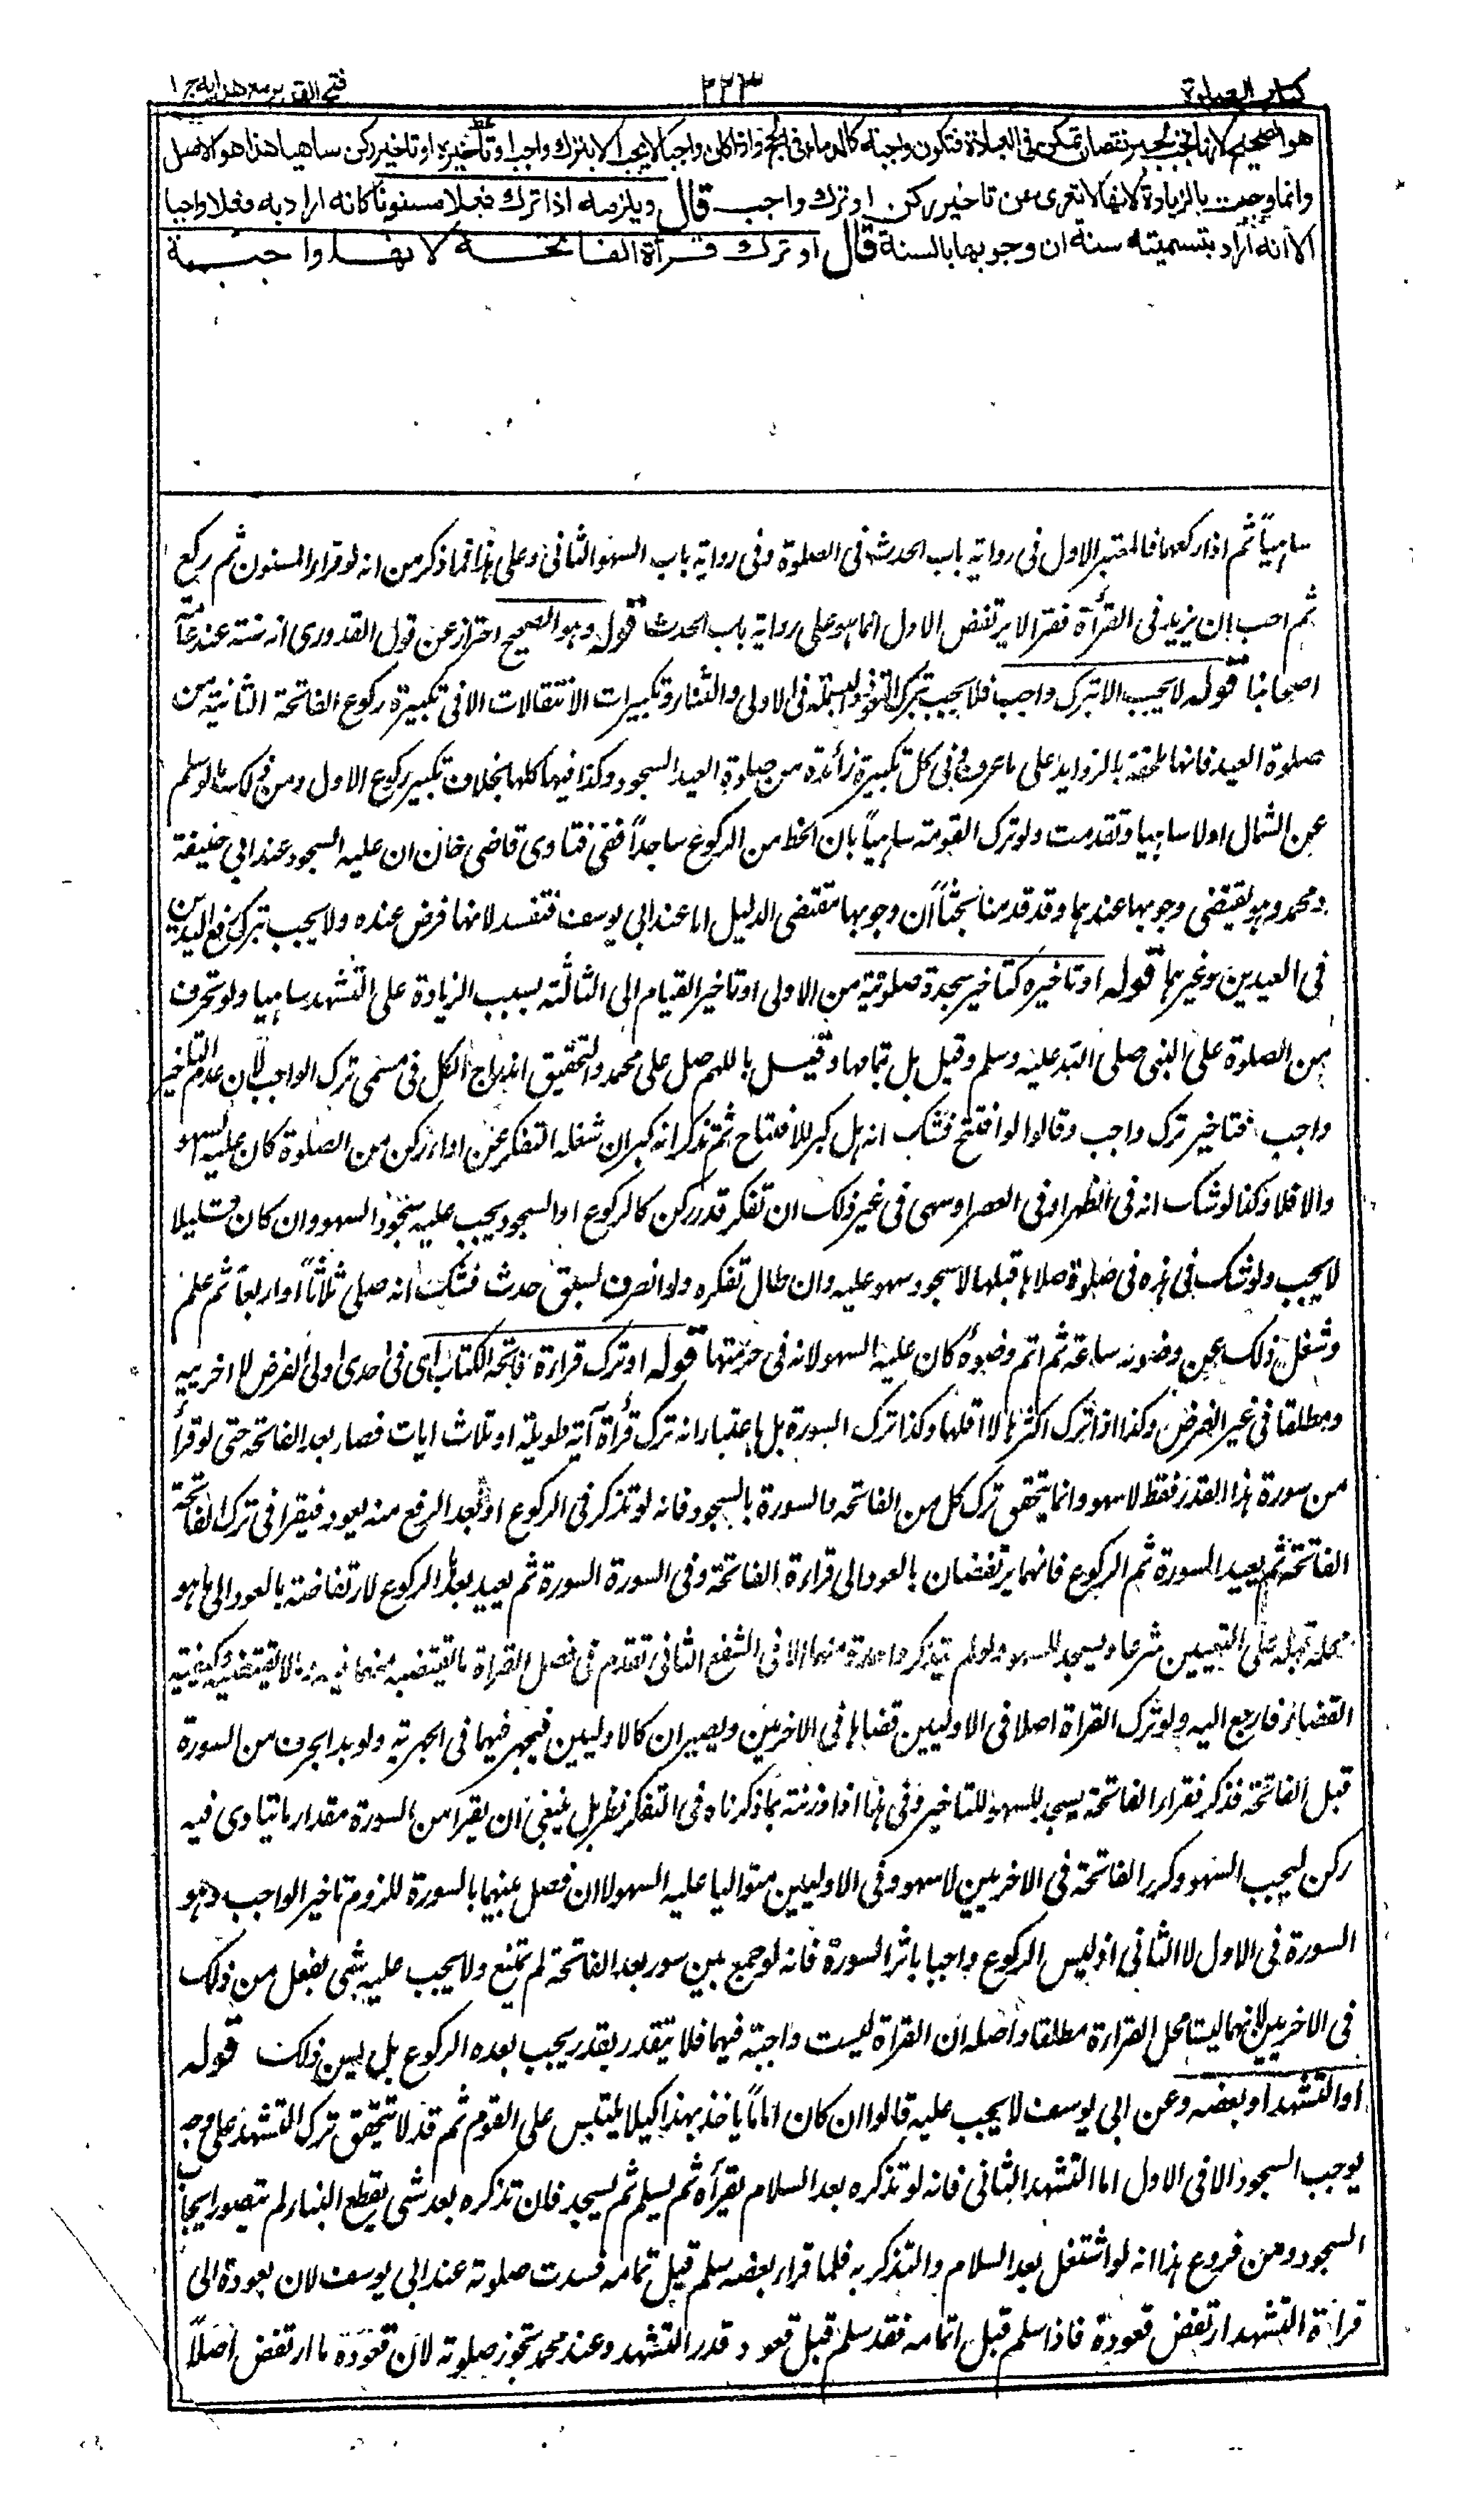 كتاب الصلوة
٢٢٣
فتح القدير مع هدايه ج ١
هو الصحيح لانها تجب لجبر نقصان تمكن فى العبادة فتكون واجبة كالدماء فى الحج واذا كان واجبا لا يجب الا بترك واجب او تأخيره او تاخير ركن ساهيا هذا هو الاصل
وانما وجبت بالزيادة لانها لا تعرى عن تاخير ركن او ترك واجب قال ويلزمه اذا ترك فعلا مسنونا كانه اراد به فعلا واجبا
الا انه اراد بتسميته سنة ان وجوبها بالسنة قال او ترك قرأة الفاتحة لانها واجبة
ساهياً ثم اذا ركعهما فالمعتبر الاول فى رواية باب الحدث فى الصلوة وفى رواية باب السهو الثانى وعلى هذا فما ذكر من انه لو قرأ المسنون ثم ركع
ثم احب ان يزيد فى القرأة فقرأ لا يرتفض الاول انما هو على رواية باب الحدث قوله وهو الصحيح احتراز عن قول القدورى انه سنة عند عامة
اصحابنا قوله لا يجب الا بترك واجب فلا يجب بترك التعوذ والبسملة فى الاولى والثناء وتكبيرات الانتقالات الا فى تكبيرة ركوع الفاتحة الثانية من
صلوة العيد فانها ملحقة بالزوايد على ما عرف ففى كل تكبيرة زائدة من صلوة العيد السجود وكذا فيها كلها بخلاف تكبير ركوع الاول ومن ذلك ما لو سلم
عن الشمال اولا ساهيا وتقدمت ولو ترك القومة ساهياً بان انحط من الركوع ساجداً ففى فتاوى قاضى خان ان عليه السجود عند ابى حنيفة
ومحمد وهو يقتضى وجوبها عندهما وقد قدمنا بحثاً ان وجوبها مقتضى الدليل اما عند ابى يوسف فتفسد لانها فرض عنده ولا يجب بترك رفع اليدين
فى العيدين وغيرهما قوله او تاخيره كتاخير سجدة صلوتية من الاولى او تاخير القيام الى الثالثة بسبب الزيادة على التشهد ساهيا ولو بحرف
من الصلوة على النبى صلى الله عليه وسلم وقيل بل بتمامها وقيل باللهم صل على محمد والتحقيق اندراج الكل فى مسمى ترك الواجب لان عدم التاخير
واجب فتاخير ترك واجب وقالوا لو افتتح فشك انه هل كبر للافتتاح ثم تذكر انه كبر ان شغله التفكر عن اداء ركن من الصلوة كان عليه السهو
والا فلا وكذا لو شك انه فى الظهر او فى العصر او سهى فى غير ذلك ان تفكر قدر ركن كالركوع او السجود يجب عليه سجود السهو وان كان قليلا
لا يجب ولو شك فى هذه فى صلوة صلاها قبلها لا سجود سهو عليه وان طال تفكره ولو انصرف لسبق حدث فشك انه صلى ثلاثاً او اربعاً ثم علم
وشغل ذلك عن وضوئه ساعة ثم اتم وضوءه كان عليه السهو لانه فى حرمتها قوله او ترك قراءة فاتحة الكتاب اى فى احدى اولى الفرض لا اخرييه
ومطلقا فى غير الفرض وكذا اذا ترك اكثرها لا اقلها وكذا ترك السورة بل باعتبار انه ترك قرأة آية طويلة او ثلاث ايات قصار بعد الفاتحة حتى لو قرأ
من سورة هذا القدر فقط لا سهو وانما يتحقق ترك كل من الفاتحة والسورة بالسجود فانه لو تذكر فى الركوع او بعد الرفع منه يعود فيقرأ فى ترك الفاتحة
الفاتحة ثم يعيد السورة ثم الركوع فانهما يرتفضان بالعود الى قراءة الفاتحة وفى السورة السورة ثم يعيد بعدها الركوع لارتفاضه بالعود الى ما هو
محله قبله على التعيين شرعا ويسجد للسهو ولو لم يتذكر واحدة منهما الا فى الشفع الثانى تقدم فى فصل القرأة ما يقتضيه منهما فيه وما لا يقتضيه وكيفية
القضاء فارجع اليه ولو ترك القرأة اصلا فى الاوليين قضاها فى الاخريين ويصيران كالاوليين فيجهر فيهما فى الجهرية ولو بدأ بحرف من السورة
قبل الفاتحة فذكر فقرأ الفاتحة يسجد للسهو للتاخير وفى هذا اذا وزنته بما ذكرناه فى التفكر نظر بل ينبغى ان يقرأ من السورة مقدار ما يتادى فيه
ركن ليجب السهو وكرر الفاتحة فى الاخريين لا سهو وفى الاوليين متواليا عليه السهو لا ان فصل بينهما بالسورة للزوم تاخير الواجب وهو
السورة فى الاول لا الثانى اذ ليس الركوع واجبا باثر السورة فانه لو جمع بين سور بعد الفاتحة لم يمتنع ولا يجب عليه شى بفعل من ذلك
فى الاخريين لانهما ليستا محل القراءة مطلقا واصله ان القرأة ليست واجبة فيهما فلا يتقدر بقدر يجب بعده الركوع بل يسن ذلك قوله
او التشهد او بعضه وعن ابى يوسف لا يجب عليه قالوا ان كان اماماً ياخذ بهذا كيلا يلتبس على القوم ثم قد لا يتحقق ترك التشهد على وجه
يوجب السجود الا فى الاول اما التشهد الثانى فانه لو تذكره بعد السلام يقرأه ثم يسلم ثم يسجد فان تذكره بعد شى يقطع البناء لم يتصور ايجاب
السجود ومن فروع هذا انه لو اشتغل بعد السلام والتذكر به فلما قرأ بعضه سلم قبل تمامه فسدت صلوته عند ابى يوسف لان بعوده الى
قراءة التشهد ارتفض قعوده فاذا سلم قبل اتمامه فقد سلم قبل قعود قدر التشهد وعند محمد تجوز صلوته لان قعوده ما ارتفض اصلاً